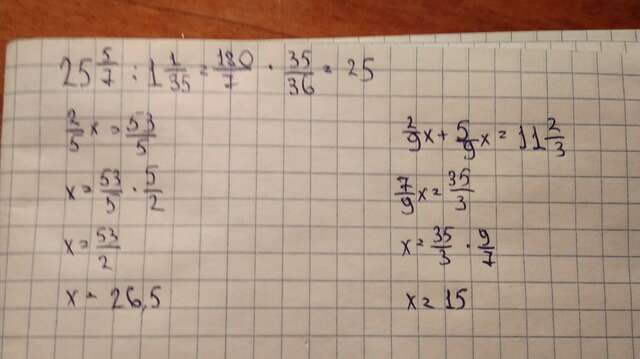 25 5/7 : 1 1/35 = 180/7 · 35/36 = 25
2/5 x = 53/5
x = 53/5 · 5/2
x = 53/2
x = 26,5
2/9 x + 5/9 x = 11 2/3
7/9 x = 35/3
x = 35/3 · 9/7
x = 15